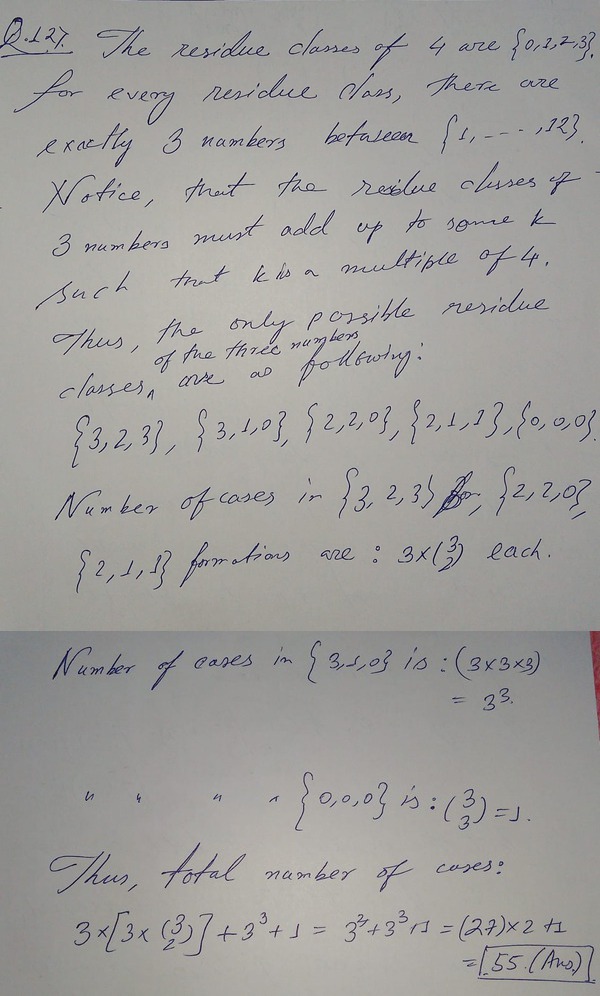 Q.127. The residue classes of 4 are {0,1,2,3}.
for every residue class, there are
exactly 3 numbers between {1, ---, 12}.
Notice, that the residue classes of
3 numbers must add up to some k
such that k is a multiple of 4.
Thus, the only possible residue
of the three numbers
classes, are as following:
{3,2,3}, {3,1,0}, {2,2,0}, {2,1,1}, {0,0,0}.
Number of cases in {3,2,3}, {2,2,0},
{2,1,1} formations are : 3×(3 2) each.
Number of cases in {3,1,0} is : (3×3×3)
= 3³.
" " " " {0,0,0} is : (3 3) = 1.
Thus, total number of cases:
3×[3×(3 2)] + 3³ + 1 = 3³ + 3³ + 1 = (27)×2 + 1
= 55. (Ans.)